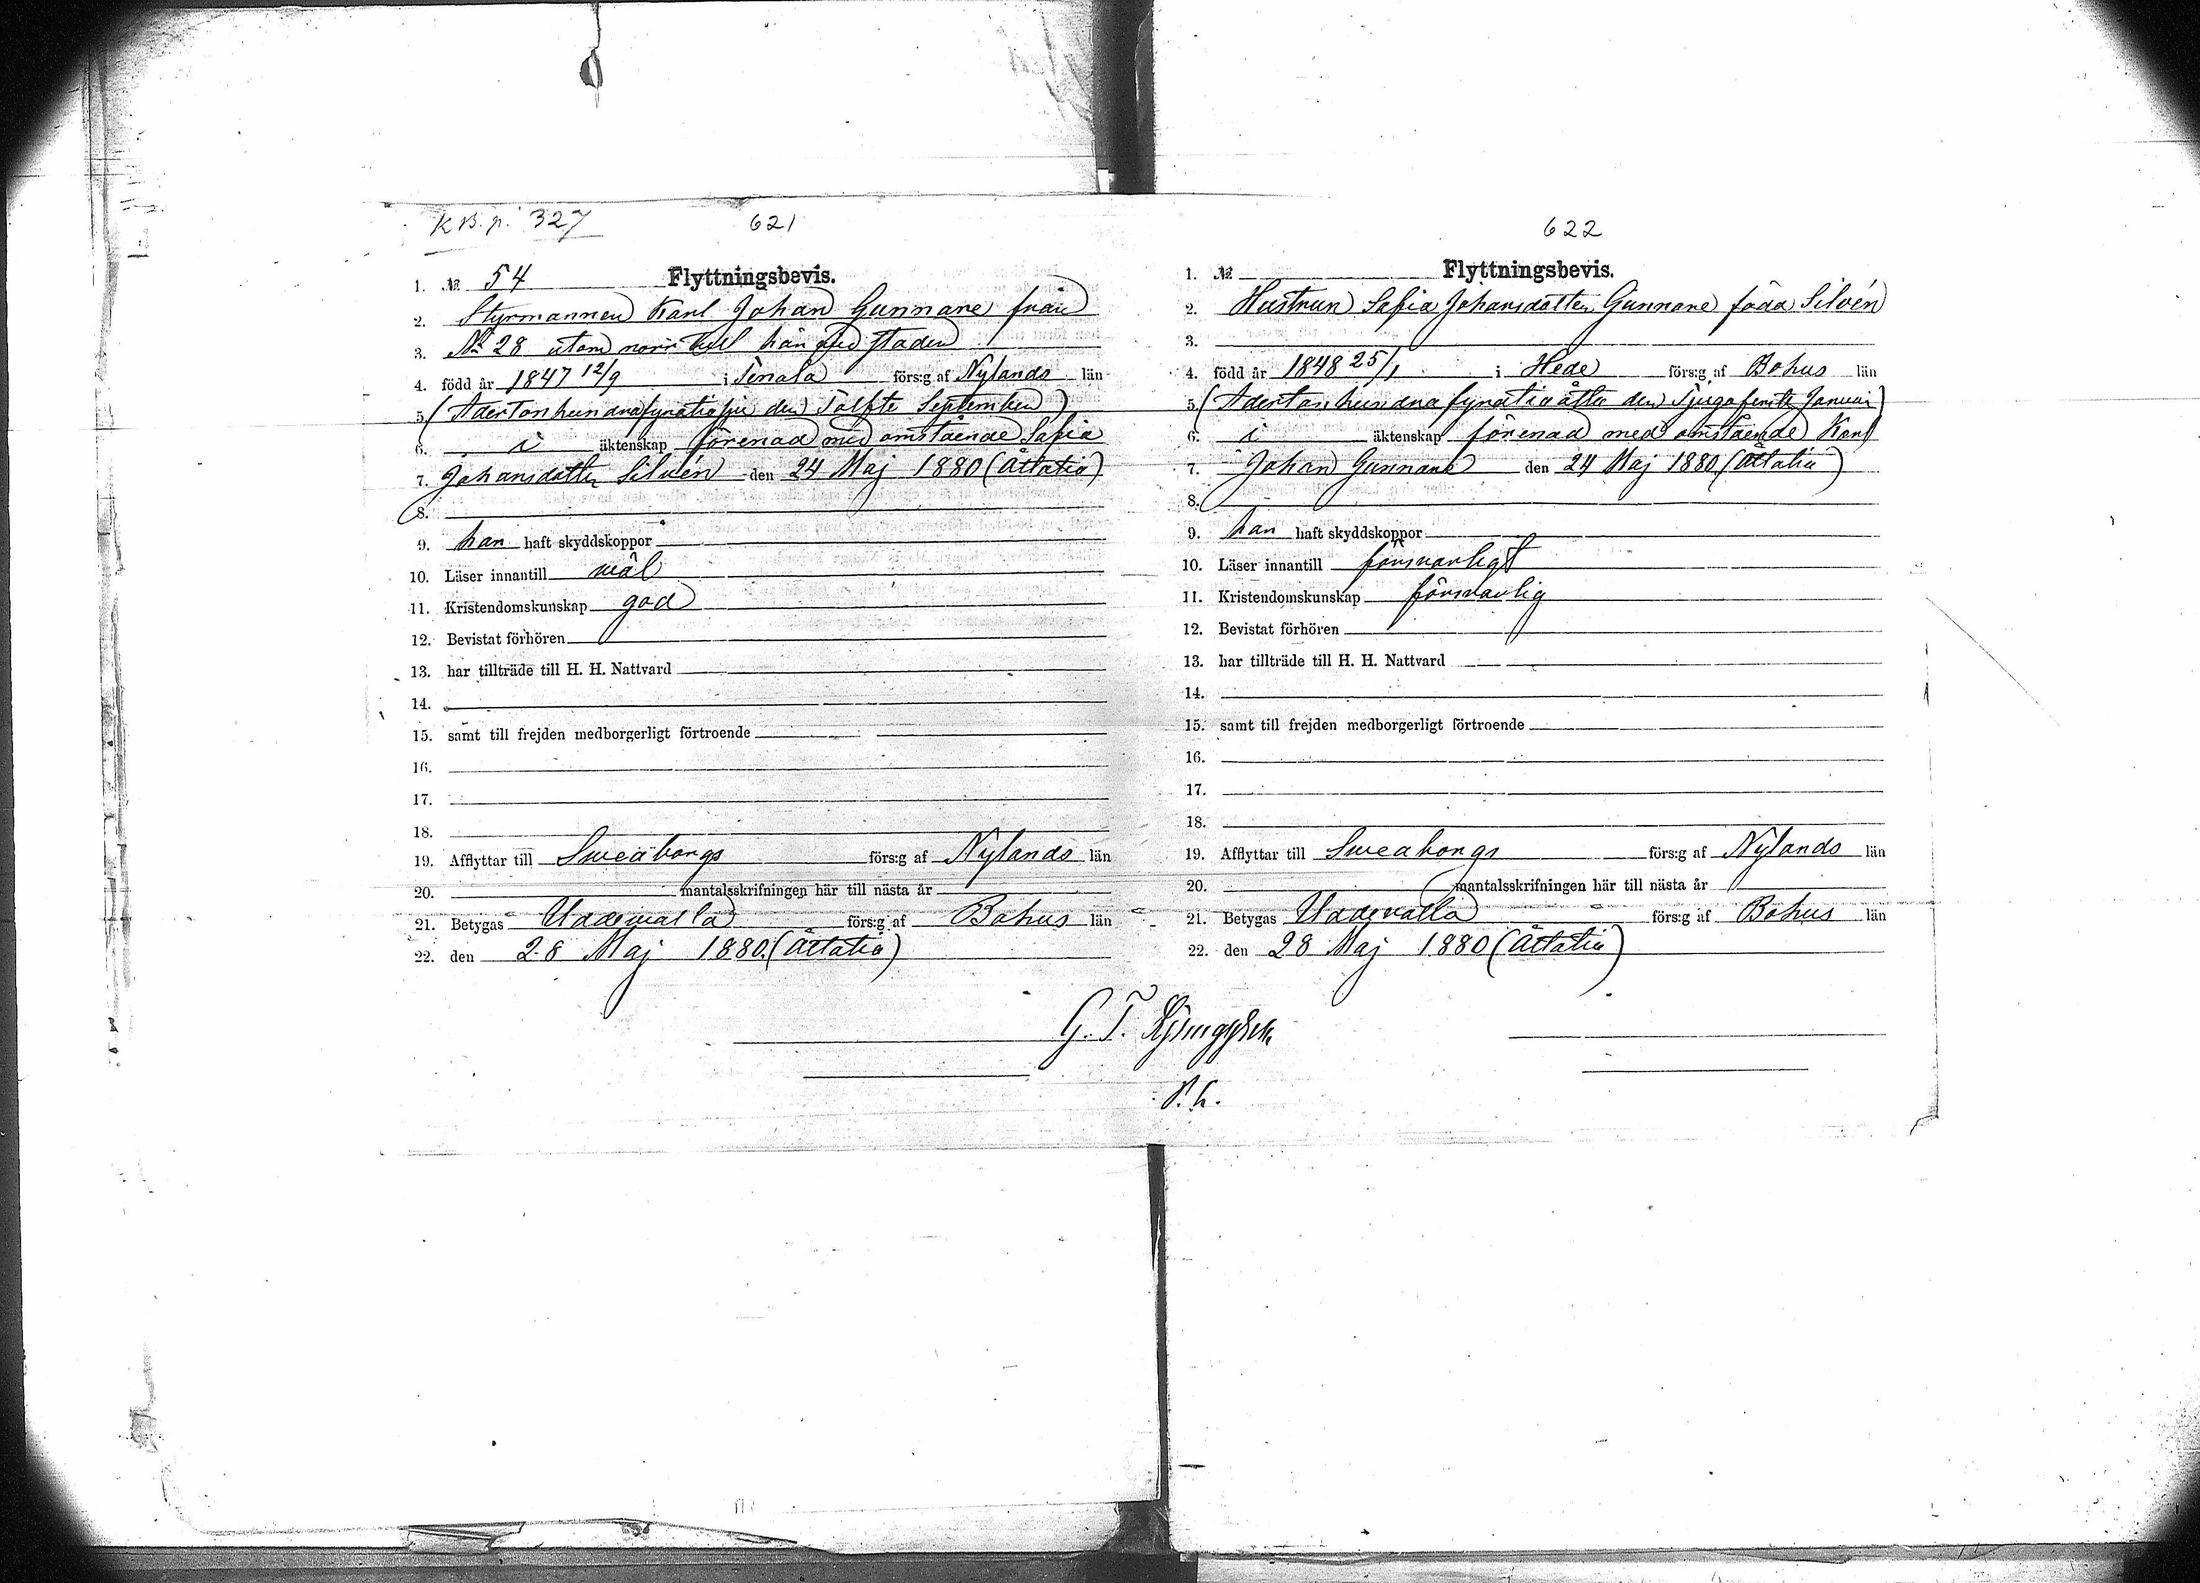 K.B. p. 327
621
1. № 54 Flyttningsbevis.
2. Styrmannen Karl Johan Gunnare från
3. № 28 utom norr tull här vid staden
4. född år 1847 12/9 i Tenala förs:g af Nylands län
5. (Adertonhundrafyratiosju den Tolfte September)
6. i äktenskap förenad med omstående Sofia
7. Johansdotter Silvén den 24 Maj 1880 (Åttatio)
8.
9. har haft skyddskoppor
10. Läser innantill väl
11. Kristendomskunskap god
12. Bevistat förhören
13. har tillträde till H. H. Nattvard
14.
15. samt till frejden medborgerligt förtroende
16.
17.
18.
19. Afflyttar till Sweaborgs förs:g af Nylands län
20. mantalsskrifningen här till nästa år
21. Betygas Uddevalla förs:g af Bohus län
22. den 28 Maj 1880. (Åttatio)
622
1. № Flyttningsbevis.
2. Hustrun Sofia Johansdotter Gunnare född Silvén
3.
4. född år 1848 25/1 i Hede förs:g af Bohus län
5. (Adertonhundrafyratioåtta den Tjugofemte Januari)
6. i äktenskap förenad med omstående Karl
7. Johan Gunnare den 24 Maj 1880. (Åttatio)
8.
9. har haft skyddskoppor
10. Läser innantill försvarligt
11. Kristendomskunskap försvarlig
12. Bevistat förhören
13. har tillträde till H. H. Nattvard
14.
15. samt till frejden medborgerligt förtroende
16.
17.
18.
19. Afflyttar till Sweaborgs förs:g af Nylands län
20. mantalsskrifningen här till nästa år
21. Betygas Uddevalla förs:g af Bohus län
22. den 28 Maj 1880 (Åttatio)
G. T.